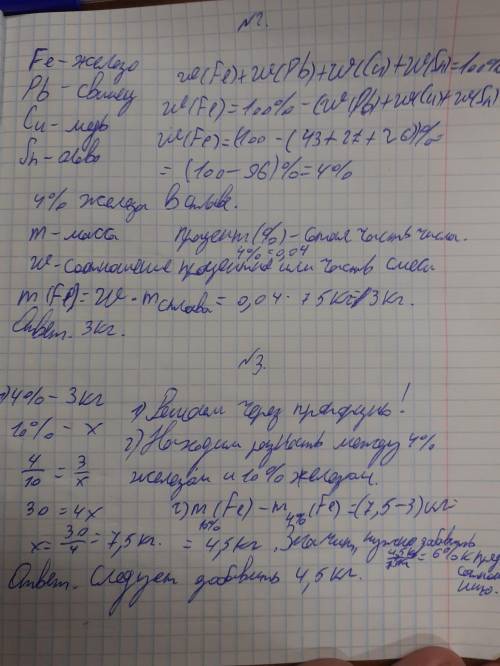 №2.
Fe - железо
w(Fe)+w(Pb)+w(Cu)+w(Sn)=100%
Pb - свинец
w(Fe)=100% - (w(Pb)+w(Cu)+w(Sn)
Cu - медь
w(Fe)=(100-(43+27+26))%=
Sn - олово
=(100-96)%=4%
4% железа в сплаве.
m - масса
процент(%) - сотая часть числа.
4%=0,04
w - соотношение или часть смеси
m(Fe)=w · m сплава = 0,04 · 75кг=3кг.
Ответ. 3кг.
№3.
1) 4% - 3кг
10% - x
4/10 = 3/x
30=4x
x=30/4=7,5кг.
1) Решаем через пропорцию!
2) Находим разность между 4%
железом и 10% железом.
2) m 10% (Fe) - m 4% (Fe) = (7,5-3)кг=
= 4,5кг. Значит, нужно добавить
= 6% к
Ответ. Следует добавить 4,5кг.